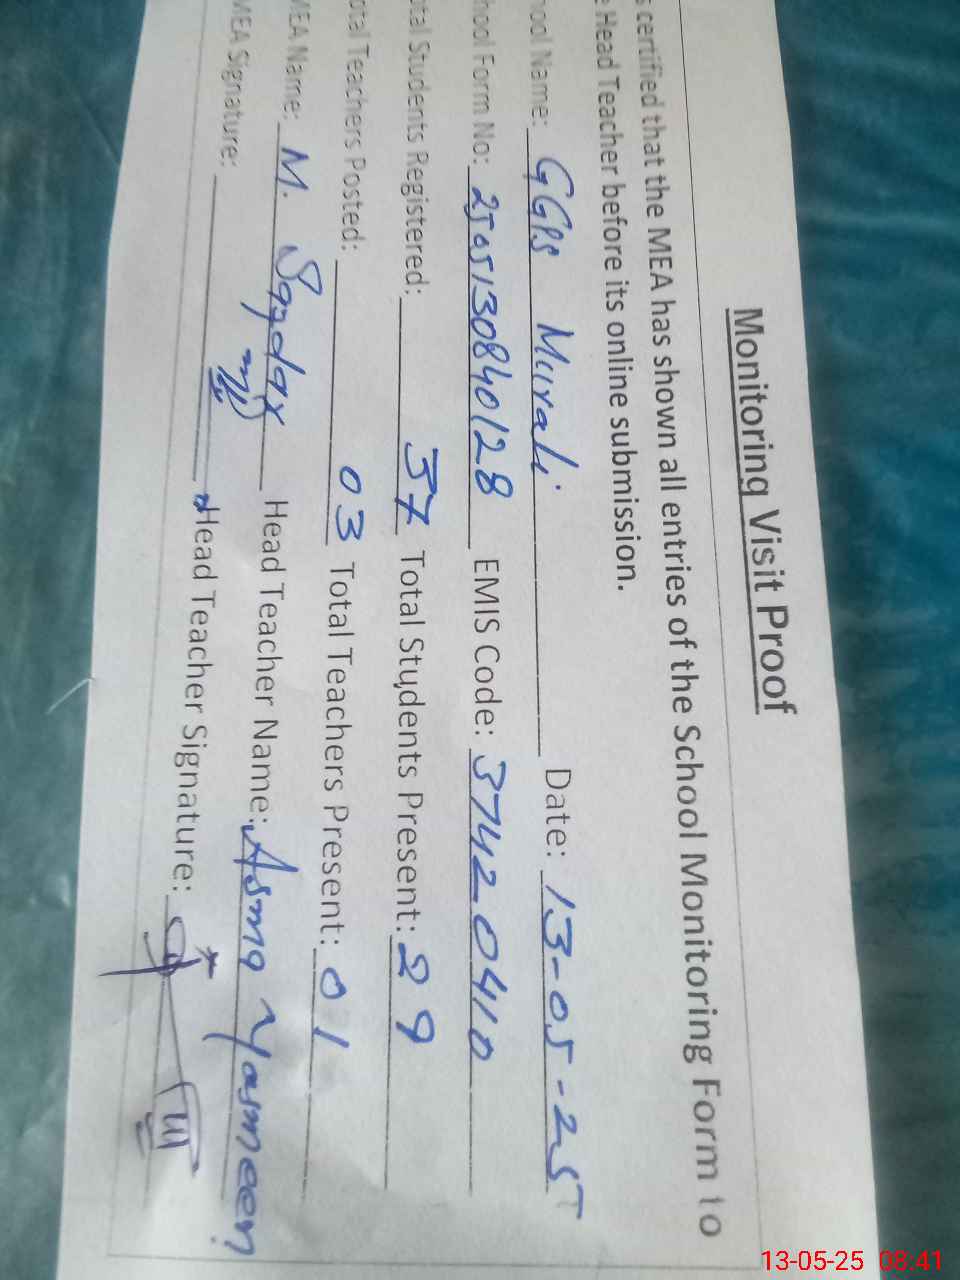 Monitoring Visit Proof
s certified that the MEA has shown all entries of the School Monitoring Form to
e Head Teacher before its online submission.
hool Name: GGPS Murali Date: 13-05-25
hool Form No: 2505130840128 EMIS Code: 37420410
otal Students Registered: 57 Total Students Present: 29
otal Teachers Posted: 03 Total Teachers Present: 01
MEA Name: M. Head Teacher Name: Asma Yasmeen
MEA Signature: Head Teacher Signature:
13-05-25 08:41